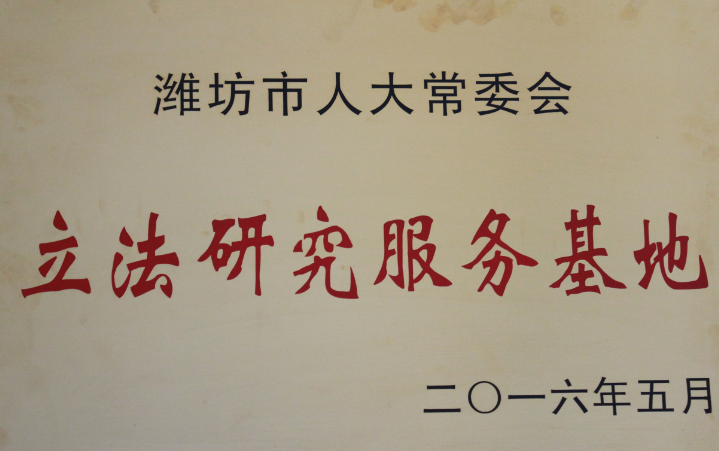 潍坊市人大常委会
立法研究服务基地
二〇一六年五月